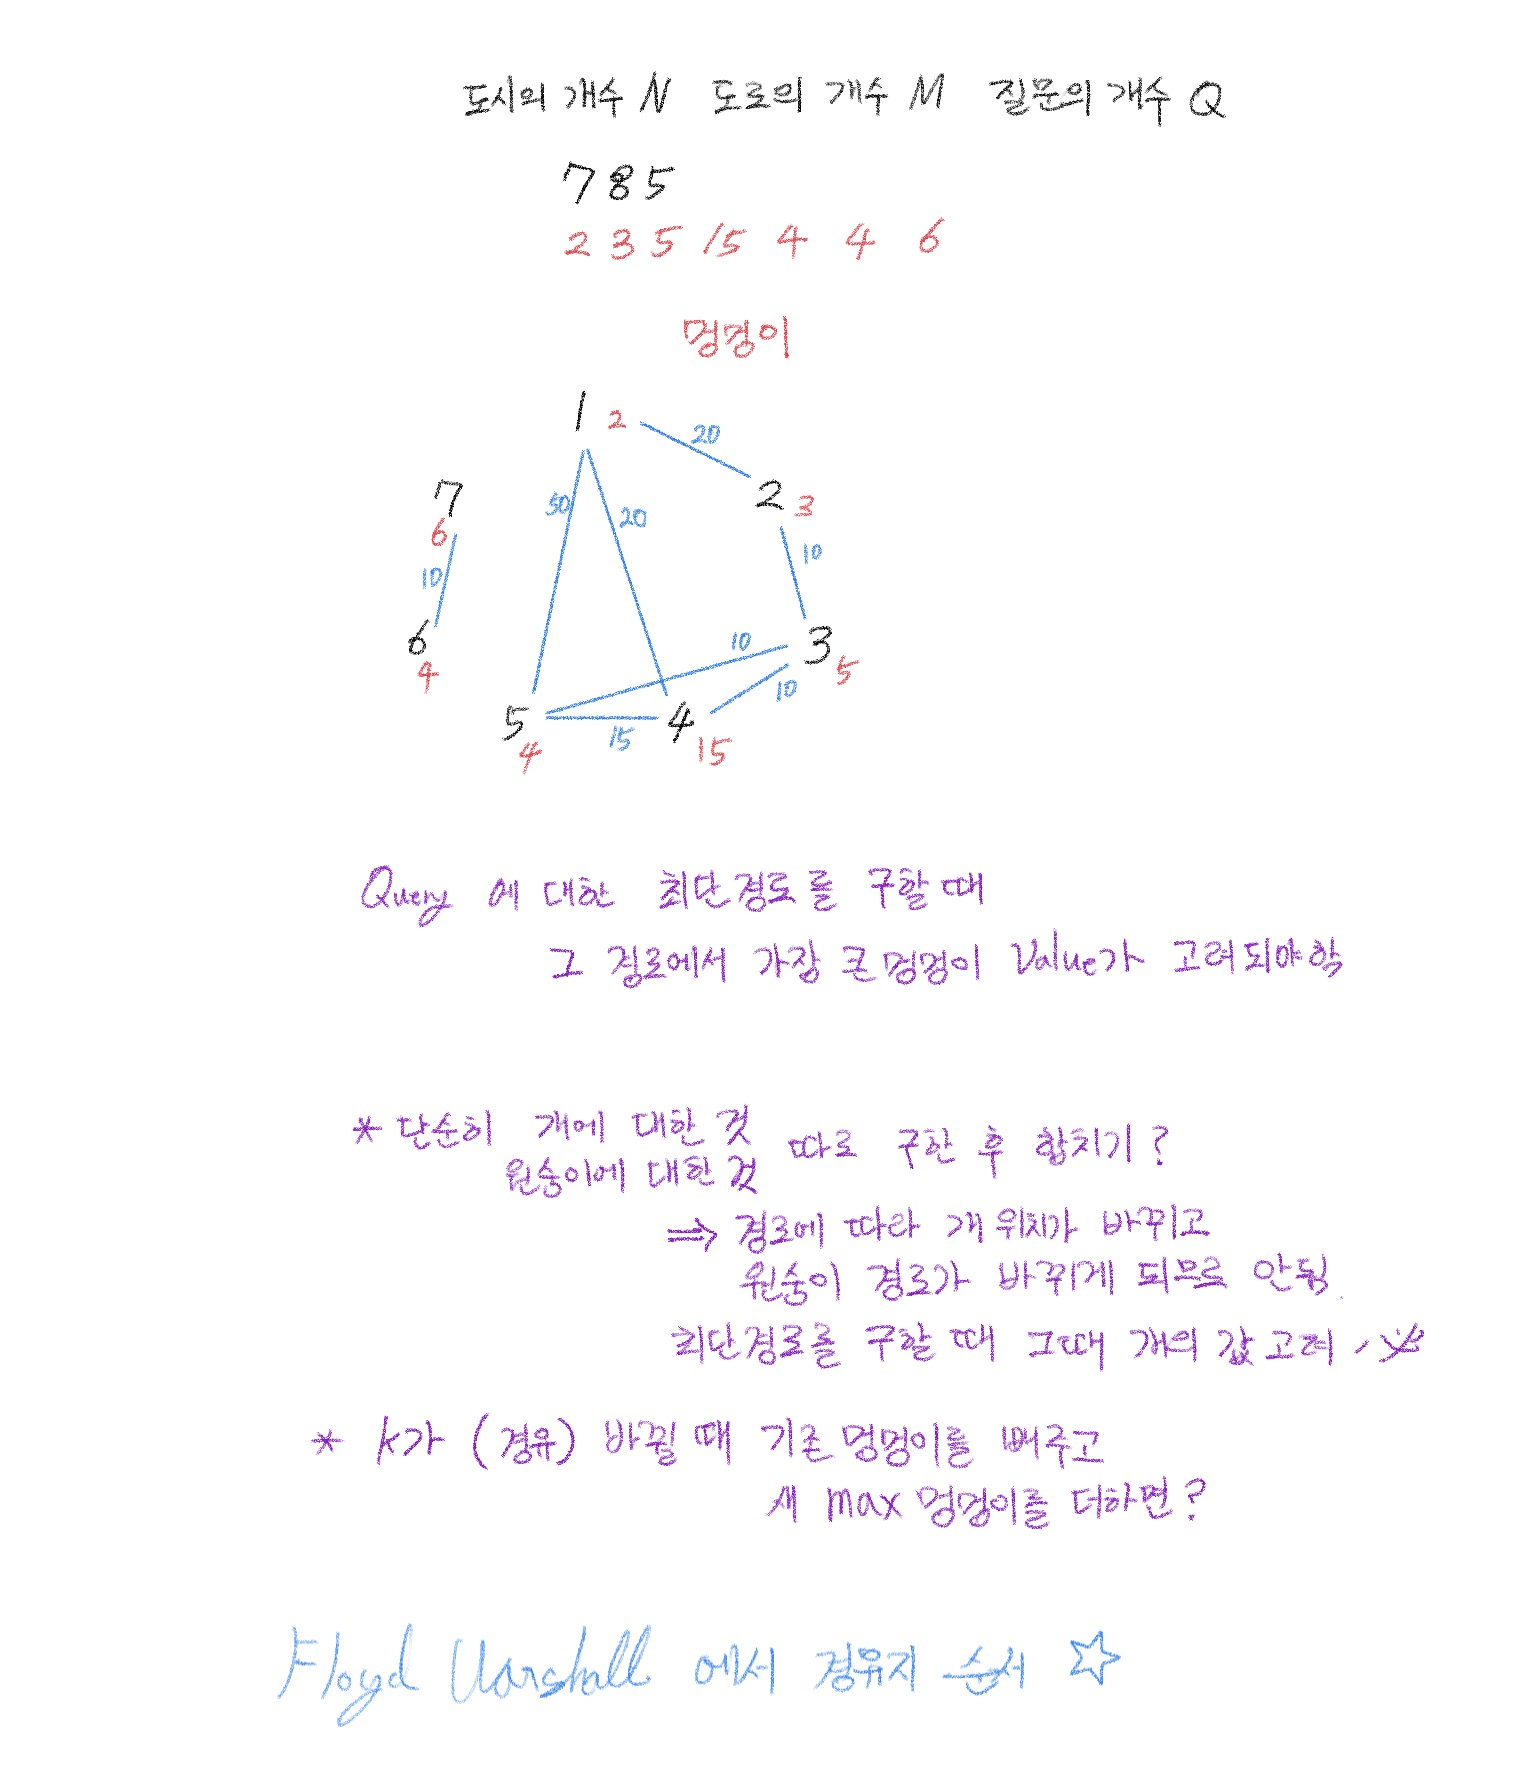 도시의 개수 N 도로의 개수 M 질문의 개수 Q
7 8 5
2 3 5 15 4 4 6
멍멍이
1 2
20
7
6
50
20
2 3
10
10
6
4
10
3
5
10
5
4
15
4
15
Query 에 대한 최단경로를 구할 때
그 경로에서 가장 큰 멍멍이 Value가 고려되야함
* 단순히 개에 대한 것
원숭이에 대한 것 따로 구한 후 합치기?
⇒ 경로에 따라 개 위치가 바뀌고
원숭이 경로가 바뀌게 되므로 안됨.
최단경로를 구할 때 그때 개의 값 고려
* k가 (경유) 바뀔 때 기존 멍멍이를 빼주고
새 max 멍멍이를 더하면?
Floyd Warshall 에서 경유지 순서 ☆